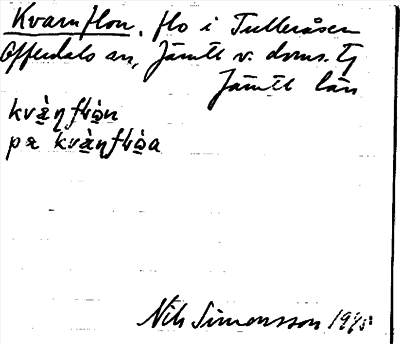 Kvarnflon, flo i Tulleråsen
Offerdals sn, Jämtl v. doms. Tg
Jämtl län
kvà̱ɳfɫò̱n
pæ kvà̱ɳfɫò̱a
Nils Simonsson 1945